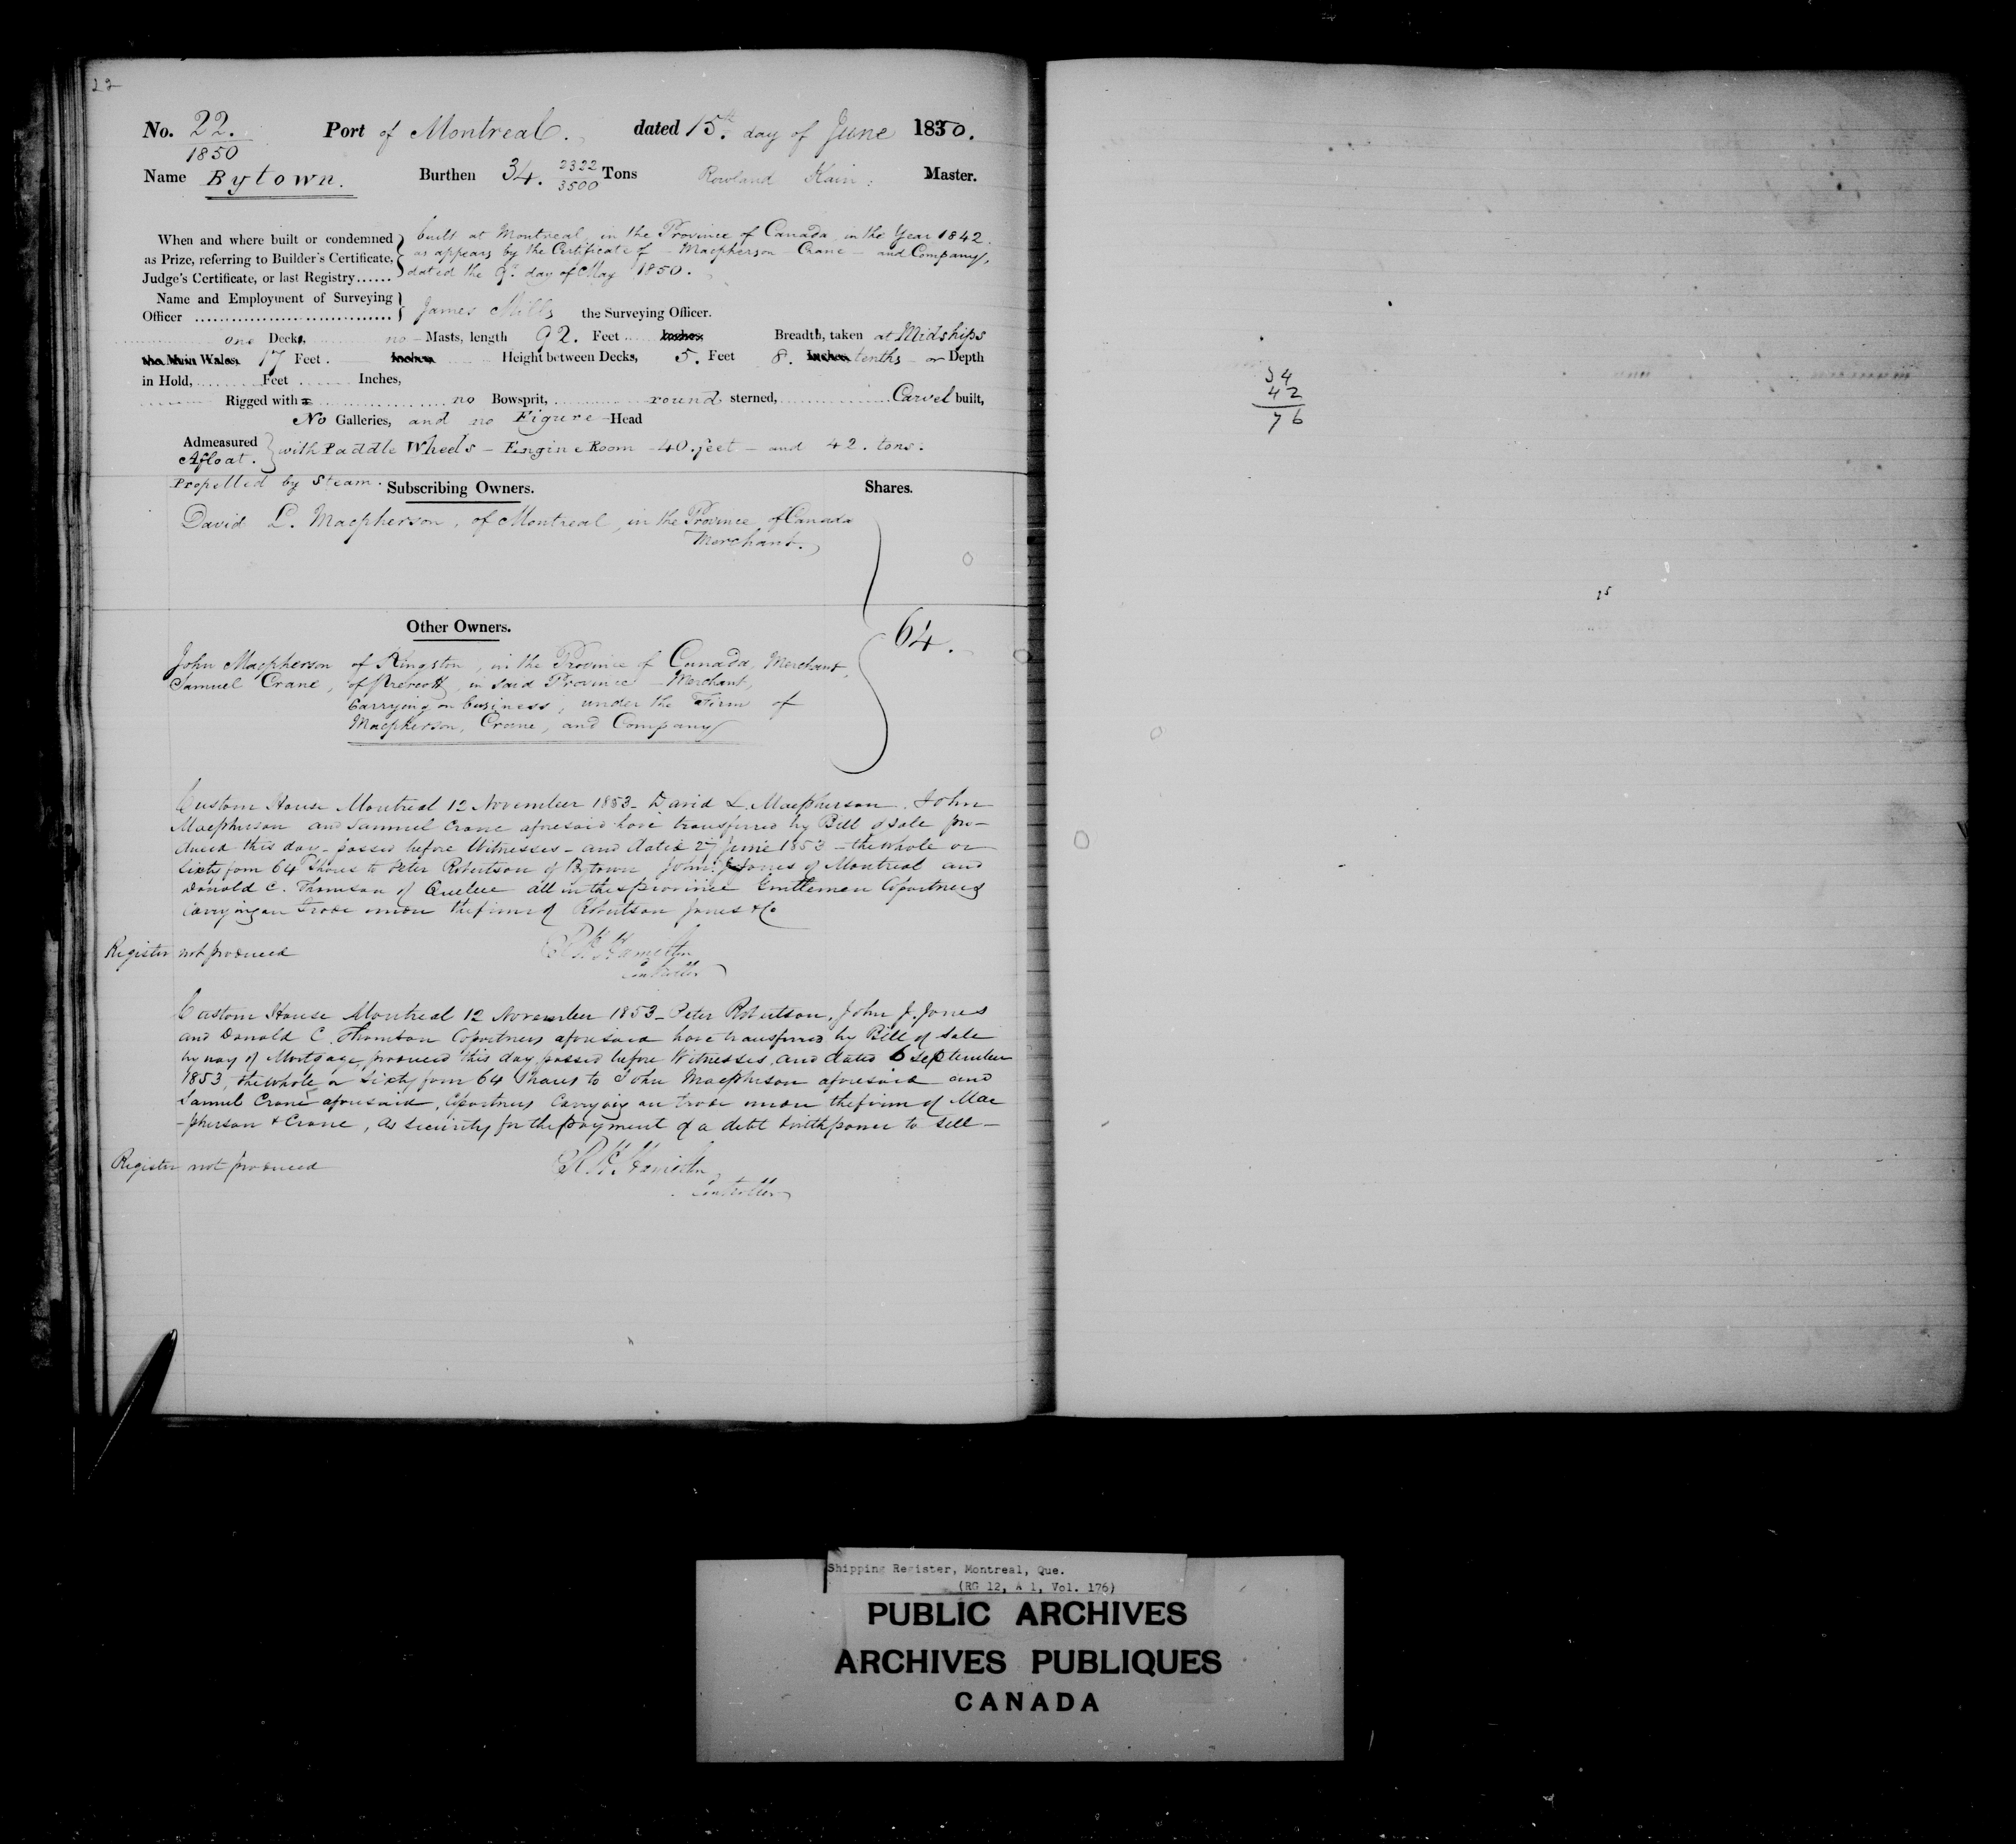 22
No. 22. Port of Montreal. dated 15th day of June 1850.
1850
Name Bytown. Burthen 34. 2322/3500 Tons Rowland Kain: Master.
When and where built or condemned as Prize, referring to Builder's Certificate, Judge's Certificate, or last Registry......
built at Montreal, in the Province of Canada, in the Year 1842.
as appears by the Certificate of - Macpherson - Crane - and Company,
dated the 9th day of May 1850.
Name and Employment of Surveying Officer
James Mills the Surveying Officer.
one Decks, no - Masts, length 92. Feet Inches Breadth, taken at Midships
the Main Wales, 17 Feet. Inches Height between Decks, 5. Feet 8. Inches tenths - or Depth
in Hold, Feet Inches,
Rigged with a no Bowsprit, round sterned, Carvel built,
No Galleries, and no Figure-Head
Admeasured Afloat. } with Paddle Wheels - Engine Room - 40. feet - and 42. tons.
Propelled by Steam.
Subscribing Owners. Shares.
David L. Macpherson, of Montreal, in the Province of Canada
Merchant.
Other Owners.
64.
John Macpherson of Kingston, in the Province of Canada, Merchant,
Samuel Crane, of Prescott, in said Province - Merchant,
Carrying on business, under the Firm of
Macpherson, Crane, and Company
Custom House Montreal 12 November 1853 - David L. Macpherson. John
Macpherson and Samuel Crane aforesaid have transferred by Bill of Sale pro-
duced this day - passed before Witnesses - and dated 27 June 1853 - the whole or
Sixty four 64 Shares to Peter Robertson of Bytown John J. Jones of Montreal and
Donald C. Thomson of Quebec all in this province Gentlemen Copartners
Carrying on Trade under the firm of Robertson Jones & Co
Register not produced
R. H. Hamilton
Controller
Custom House Montreal 12 November 1853 - Peter Robertson, John J. Jones
and Donald C. Thomson Copartners aforesaid have transferred by Bill of Sale
by way of Mortgage, produced this day, passed before Witnesses, and dated 6 September
1853, the whole or Sixty four 64 Shares to John Macpherson aforesaid and
Samuel Crane aforesaid, Copartners Carrying on trade under the firm of Mac
-pherson & Crane, as security for the payment of a debt with power to sell -
Register not produced
R. H. Hamilton
Controller
34
42
76
Shipping Register, Montreal, Que.
(RG 12, A 1, Vol. 176)
PUBLIC ARCHIVES
ARCHIVES PUBLIQUES
CANADA